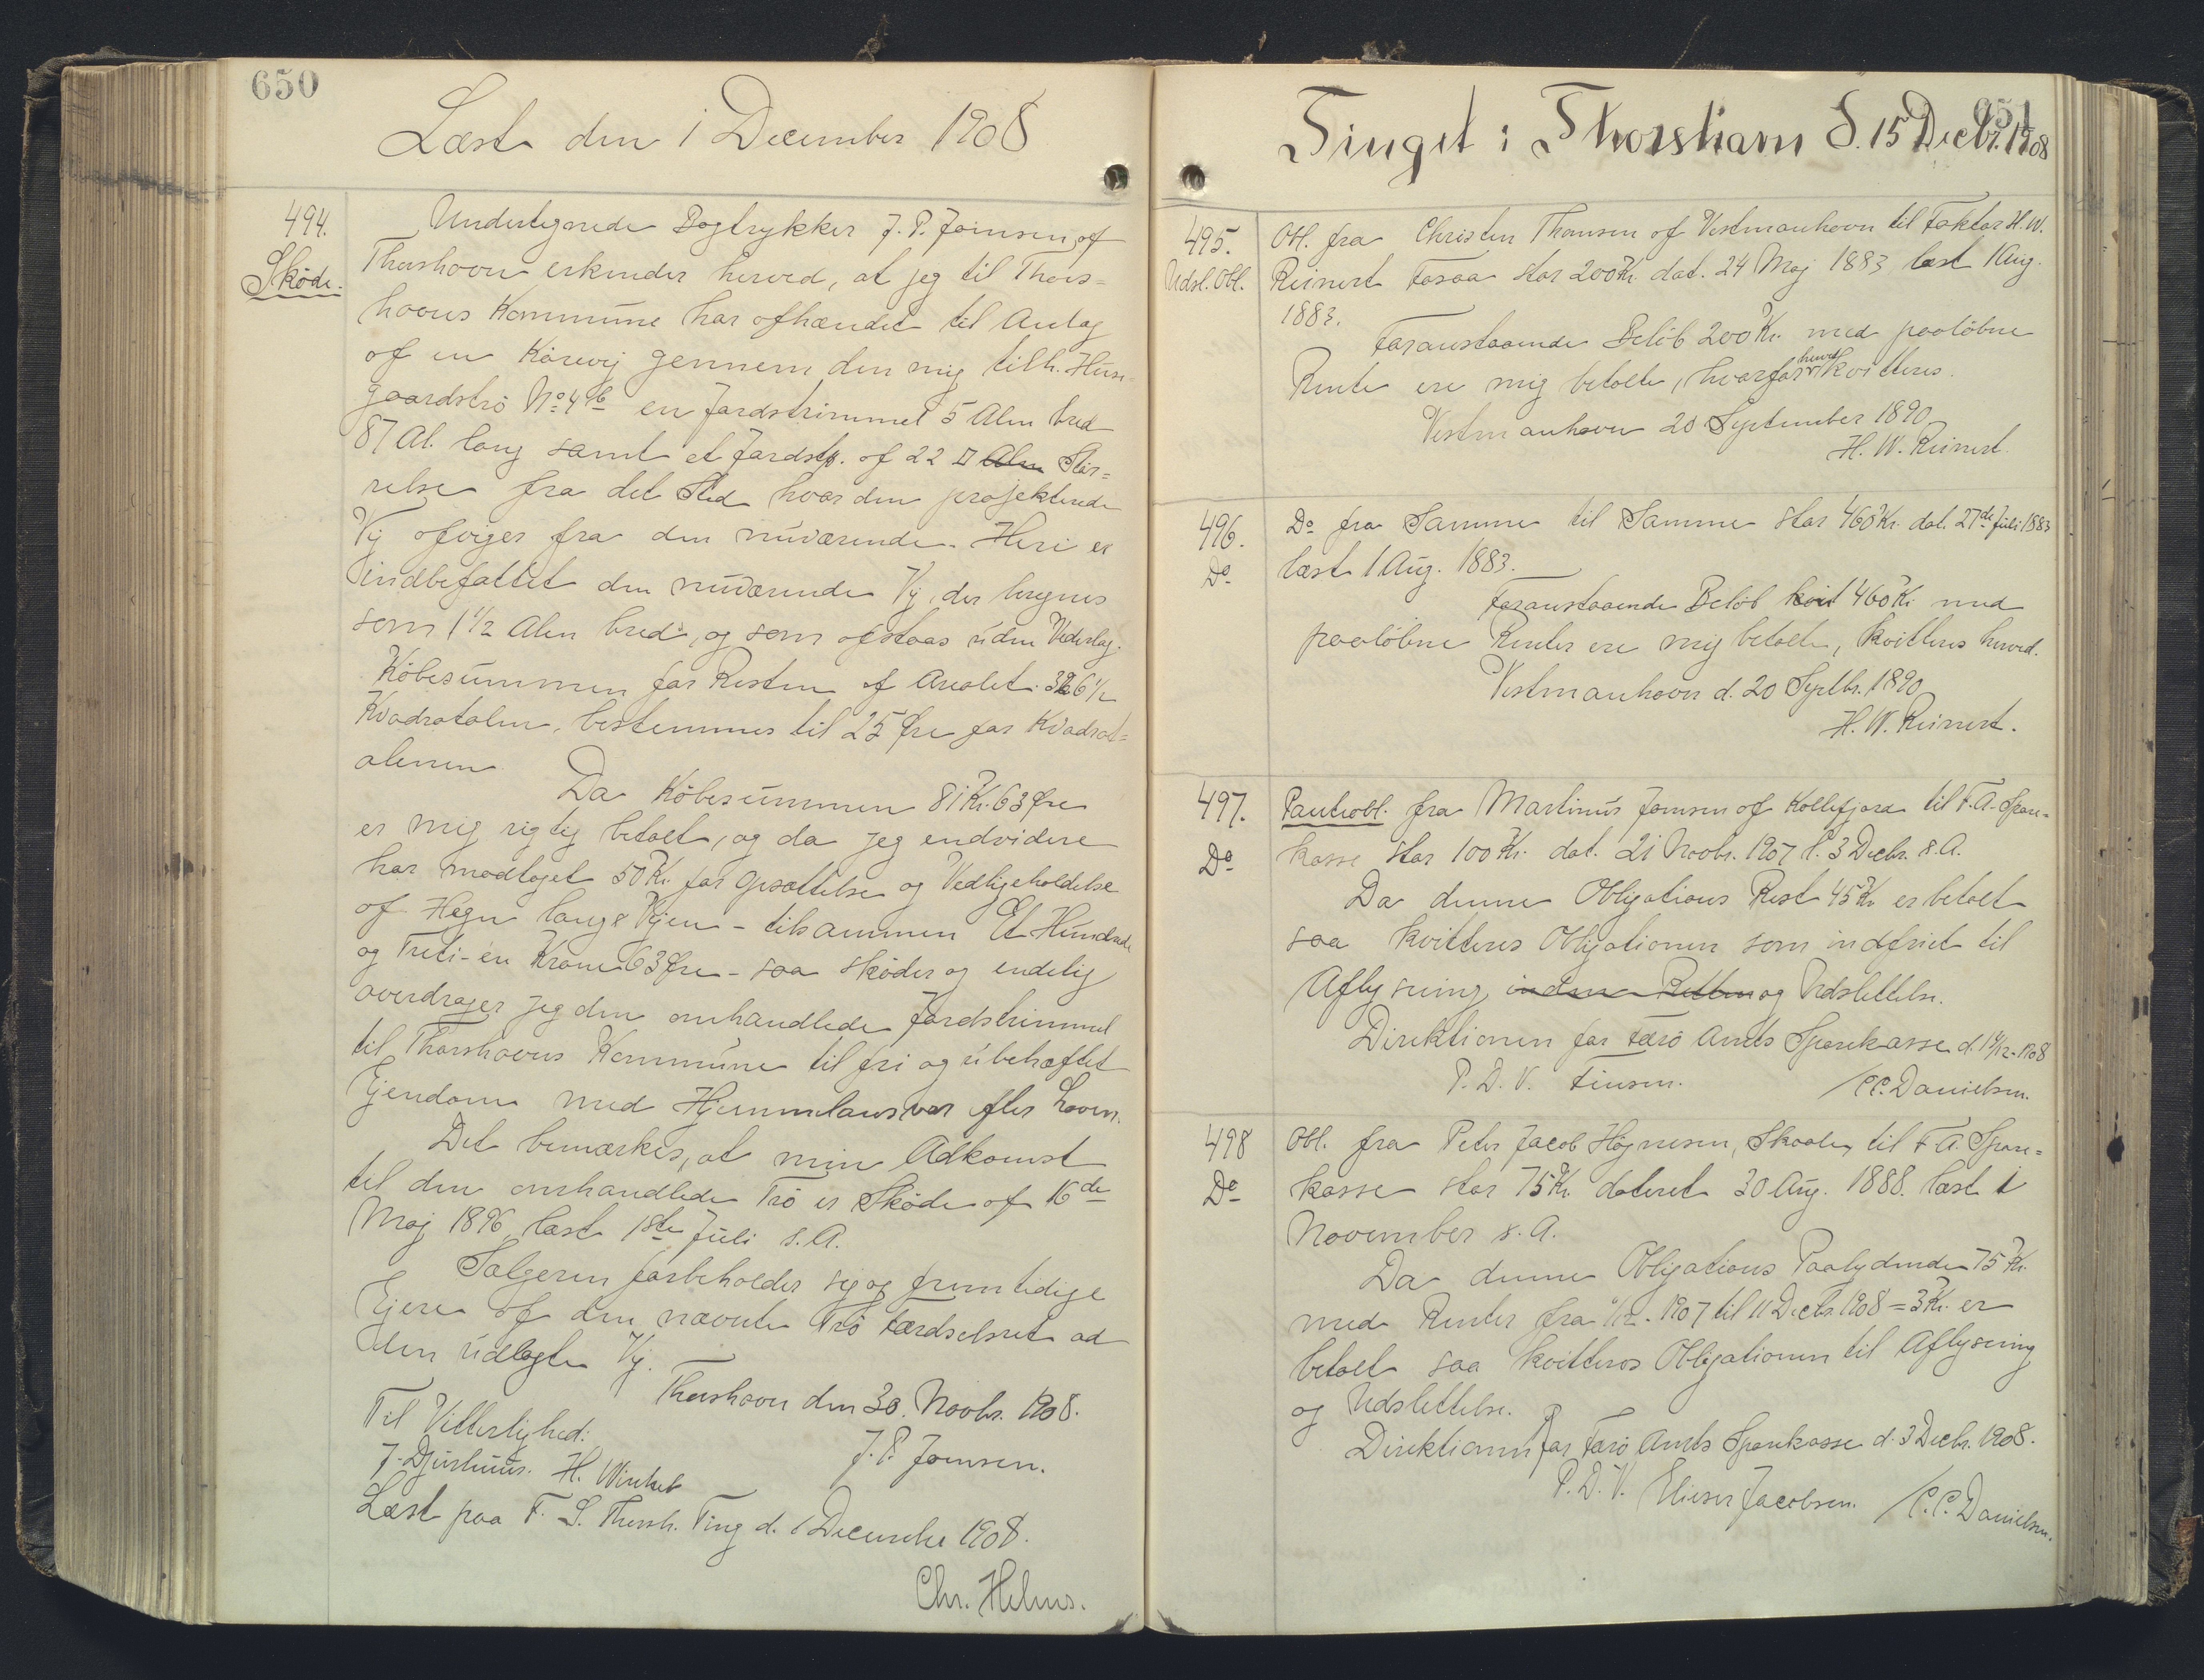 650
Læst den 1 December 1908
494.
Sköde.
Undertegnede Bogtrykker J. P. Joensen af
Thorshavn erkender herved, at jeg til Thors=
havns Kommune har afhændet til Anlæg
af en Körevej gennem den mig tilh. Huse
gaardströ No 496 en Jordstrimmel 5 Alen bred
87 Al. lang samt et Jordst. af 22 □ Alen Stör=
relse fra det Sted hvor den projekterede
Vej afviger fra den nuværende. Heri er
indbefattet den nuværende Vej, der beregnes
som 1 1/2 Alen bred, og som afstaas uden Vederlag.
Köbesummen for Resten af Arealet 326 1/2
Kvadratalen, bestemmes til 25 Øre for Kvadrat=
alenen. Da Köbesummen 81 Kr. 63 Øre
er mig rigtig betalt, og da jeg endvidere
har modtaget 50 Kr. for Opsættelse og Vedligeholdelse
af Hegn langs Vejen - tilsammen Et Hundrede
og Treti-en Krone 63 Øre - saa sköder og endelig
overdrager jeg den omhandlede Jordstrimmel
til Thorshavns Kommune til fri og ubehæftet
Ejendom med Hjemmelansvar efter Loven.
Det bemærkes, at min Adkomst
til den omhandlede Trö er Sköde af 16de
Maj 1896 læst 1ste Juli s. A.
Sælgeren forbeholder sig og fremtidige
Ejere af den nævnte Trö Færdselsret ad
den udlagte Vej.
Thorshavn den 30. Novbr. 1908.
Til Vitterlighed:
J. P. Joensen.
J. Djurhuus. H. Winther
Læst paa F. S. Thorsh. Ting d. 1 December 1908.
Chr. Helms.
651
Tinget i Thorshavn d. 15 Decbr. 1908
495.
Udsl. Obl.
Obl. fra Christen Thomsen af Vestmanhavn til Faktor H. W.
Reinert Fosaa stor 200 Kr. dat. 24 Maj 1883, læst 1 Aug.
1883.
Foranstaaende Belöb 200 Kr. med paalöbne
Rente ere mig betalte, hvorfor herved kvitteres.
Vestmanhavn 20 September 1890
H. W. Reinert.
496.
Do
Do fra Samme til Samme stor 460 Kr. dat. 27de Juli 1883
læst 1 Aug. 1883.
Foranstaaende Belöb kvit 460 Kr. med
paalöbne Renter ere mig betalte, kvitteres herved.
Vestmanhavn d. 20 Septbr. 1890
H. W. Reinert.
497.
Do
Panteobl. fra Martinus Joensen af Kollefjord til F. A. Spare=
kasse stor 100 Kr. dat. 21 Novbr. 1907 l. 3 Decbr. s. A.
Da denne Obligations Rest 45 Kr. er betalt
saa kvitteres Obligationen som indfriet til
Aflysning inden Retten og Udslettelse.
Direktionen for Færö Amts Sparekasse d. 14/12-1908
P. D. V. Finsen. / C. C. Danielsen.
498
Do
Obl. fra Peter Jacob Högnesen, Skaale, til F. A. Spare=
kasse stor 75 Kr. dateret 30 Aug. 1888. læst 1
November s. A.
Da denne Obligations Paalydende 75 Kr.
med Renter fra 11/12. 1907 til 11 Decbr. 1908 = 3 Kr. er
betalt saa kvitteres Obligationen til Aflysning
og Udslettelse.
Direktionen for Færö Amts Sparekasse d. 3 Decbr. 1908.
P. D. V. Elieser Jacobsen. / C. C. Danielsen.